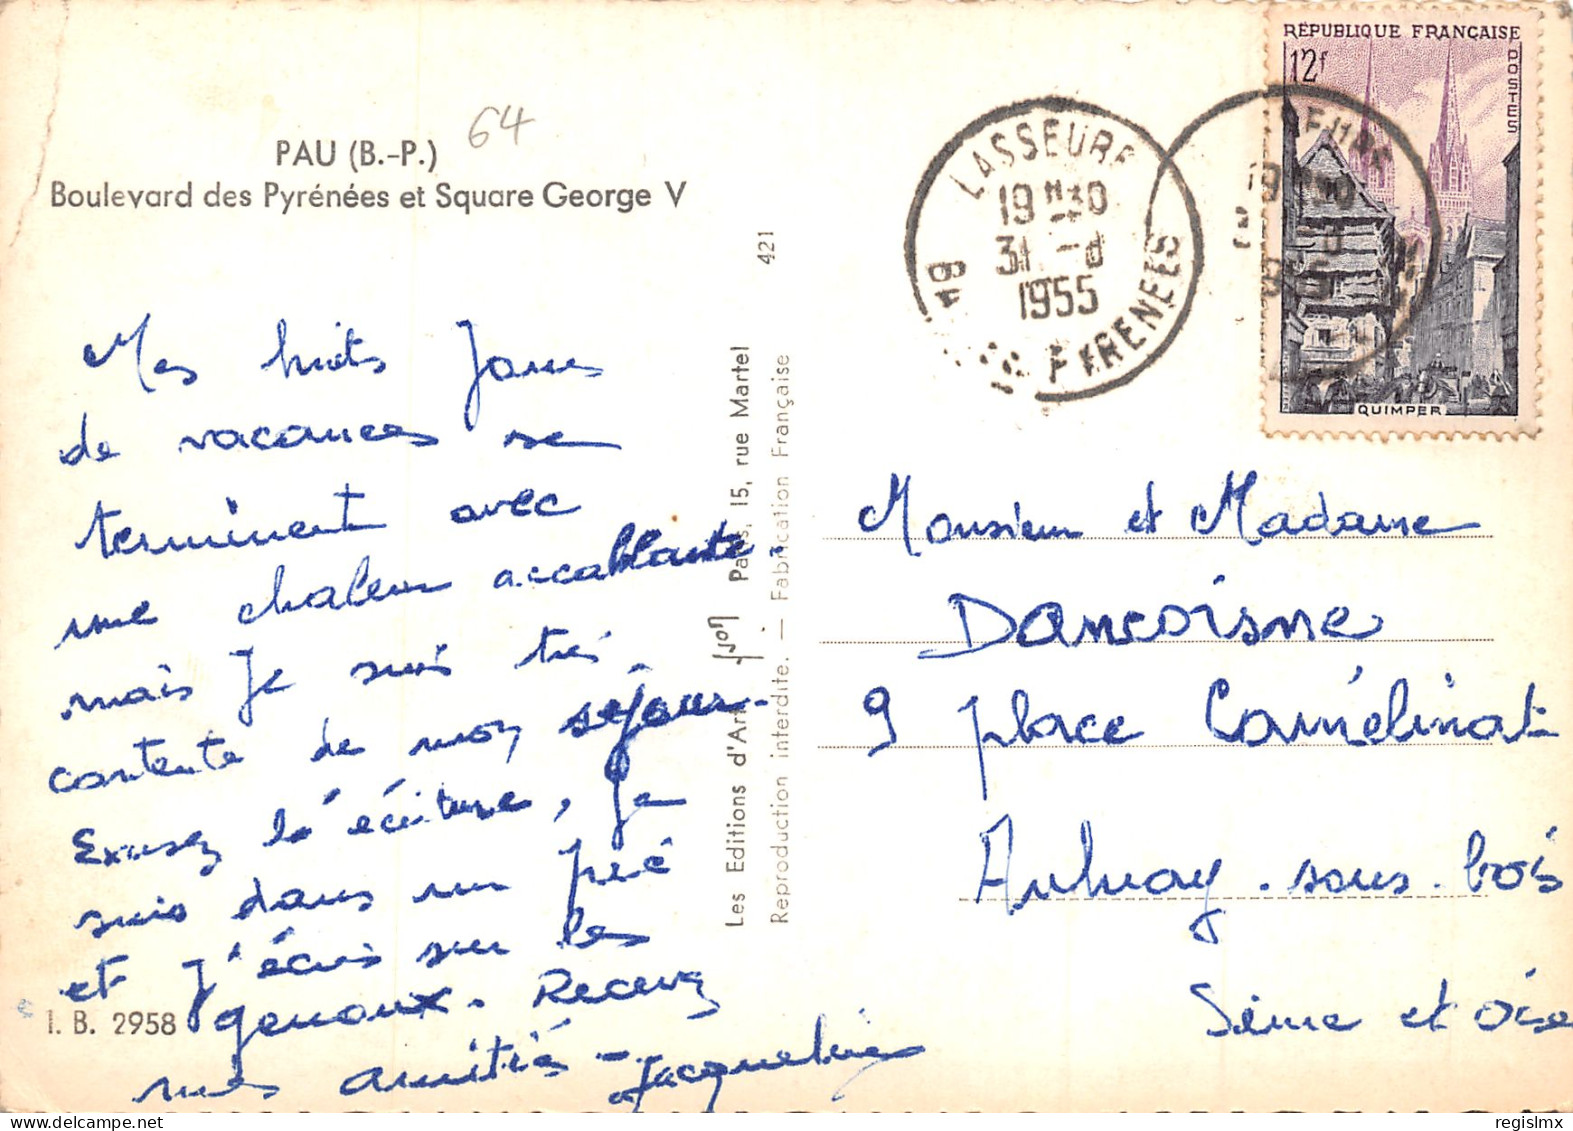 PAU (B.-P.)
64
Boulevard des Pyrénées et Square George V
Mes huit jours
de vacances se
terminent avec
une chaleur accablante.
mais je suis très
contente de mon séjour.
Excusez l'écriture, je
suis dans un pré
et j'écris sur les
genoux. Recevez
mes amitiés - Jacqueline
I. B. 2958
421
Les Editions d'Art Yvon Paris, 15, rue Martel
Reproduction interdite. — Fabrication Française
LASSEUBE
19 H30
31 -
1955
PYRENEES
RÉPUBLIQUE FRANÇAISE
12f
POSTES
QUIMPER
Monsieur et Madame
Dancoisne
9 place Camélinat
Aulnay-sous-bois
Seine et Oise
regislmx